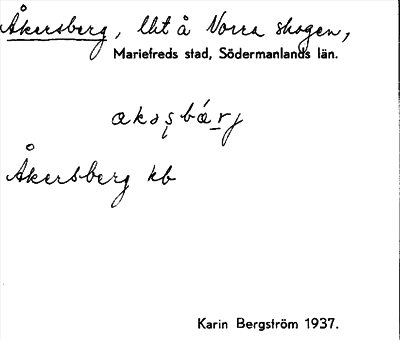 Åkersberg, lht å Norra skogen,
Mariefreds stad, Södermanlands län.
Åkersberg kb
Karin Bergström 1937.